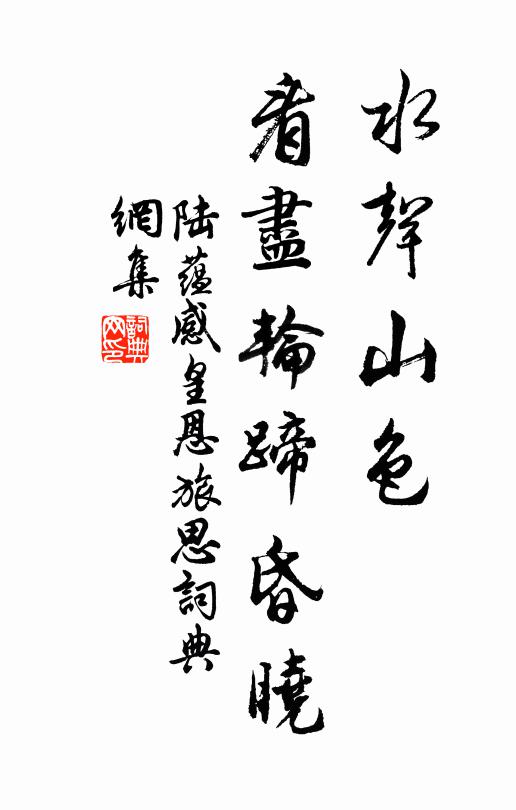 水聲山色
看盡輪蹄昏曉
陸蘊感皇恩旅思詞典
網集
詞典
网印